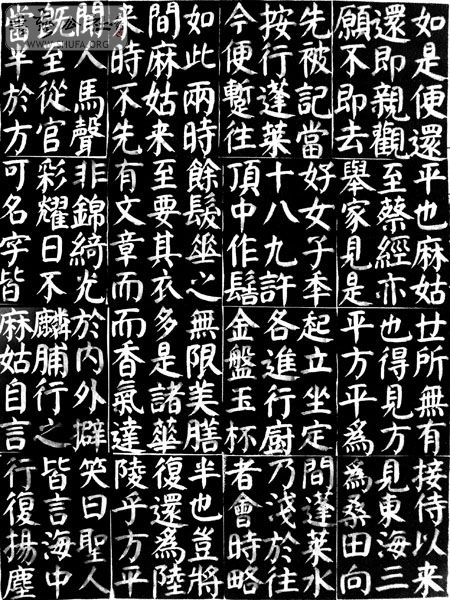 如是便還
還即親觀
願不即去
先被記當
按行蓬萊
今便蹔往
如此兩時
間麻姑来
来時不先
聞人馬聲
既至從官
當半於方
平也麻姑
至蔡經亦
舉家見是
好女子秊
十八九許
頂中作髻
餘髮垂之
至要其衣
有文章而
非錦綺光
彩耀日不
可名字皆
世所無有
也得見方
平方平為
起立坐定
各進行廚
金盤玉杯
無限美膳
多是諸華
而香氣達
於内外擗
麟脯行之
麻姑自言
接侍以来
見東海三
為桑田向
間蓬萊水
乃淺於往
者會時略
半也豈將
復還為陸
陵乎方平
笑曰聖人
皆言海中
行復揚塵